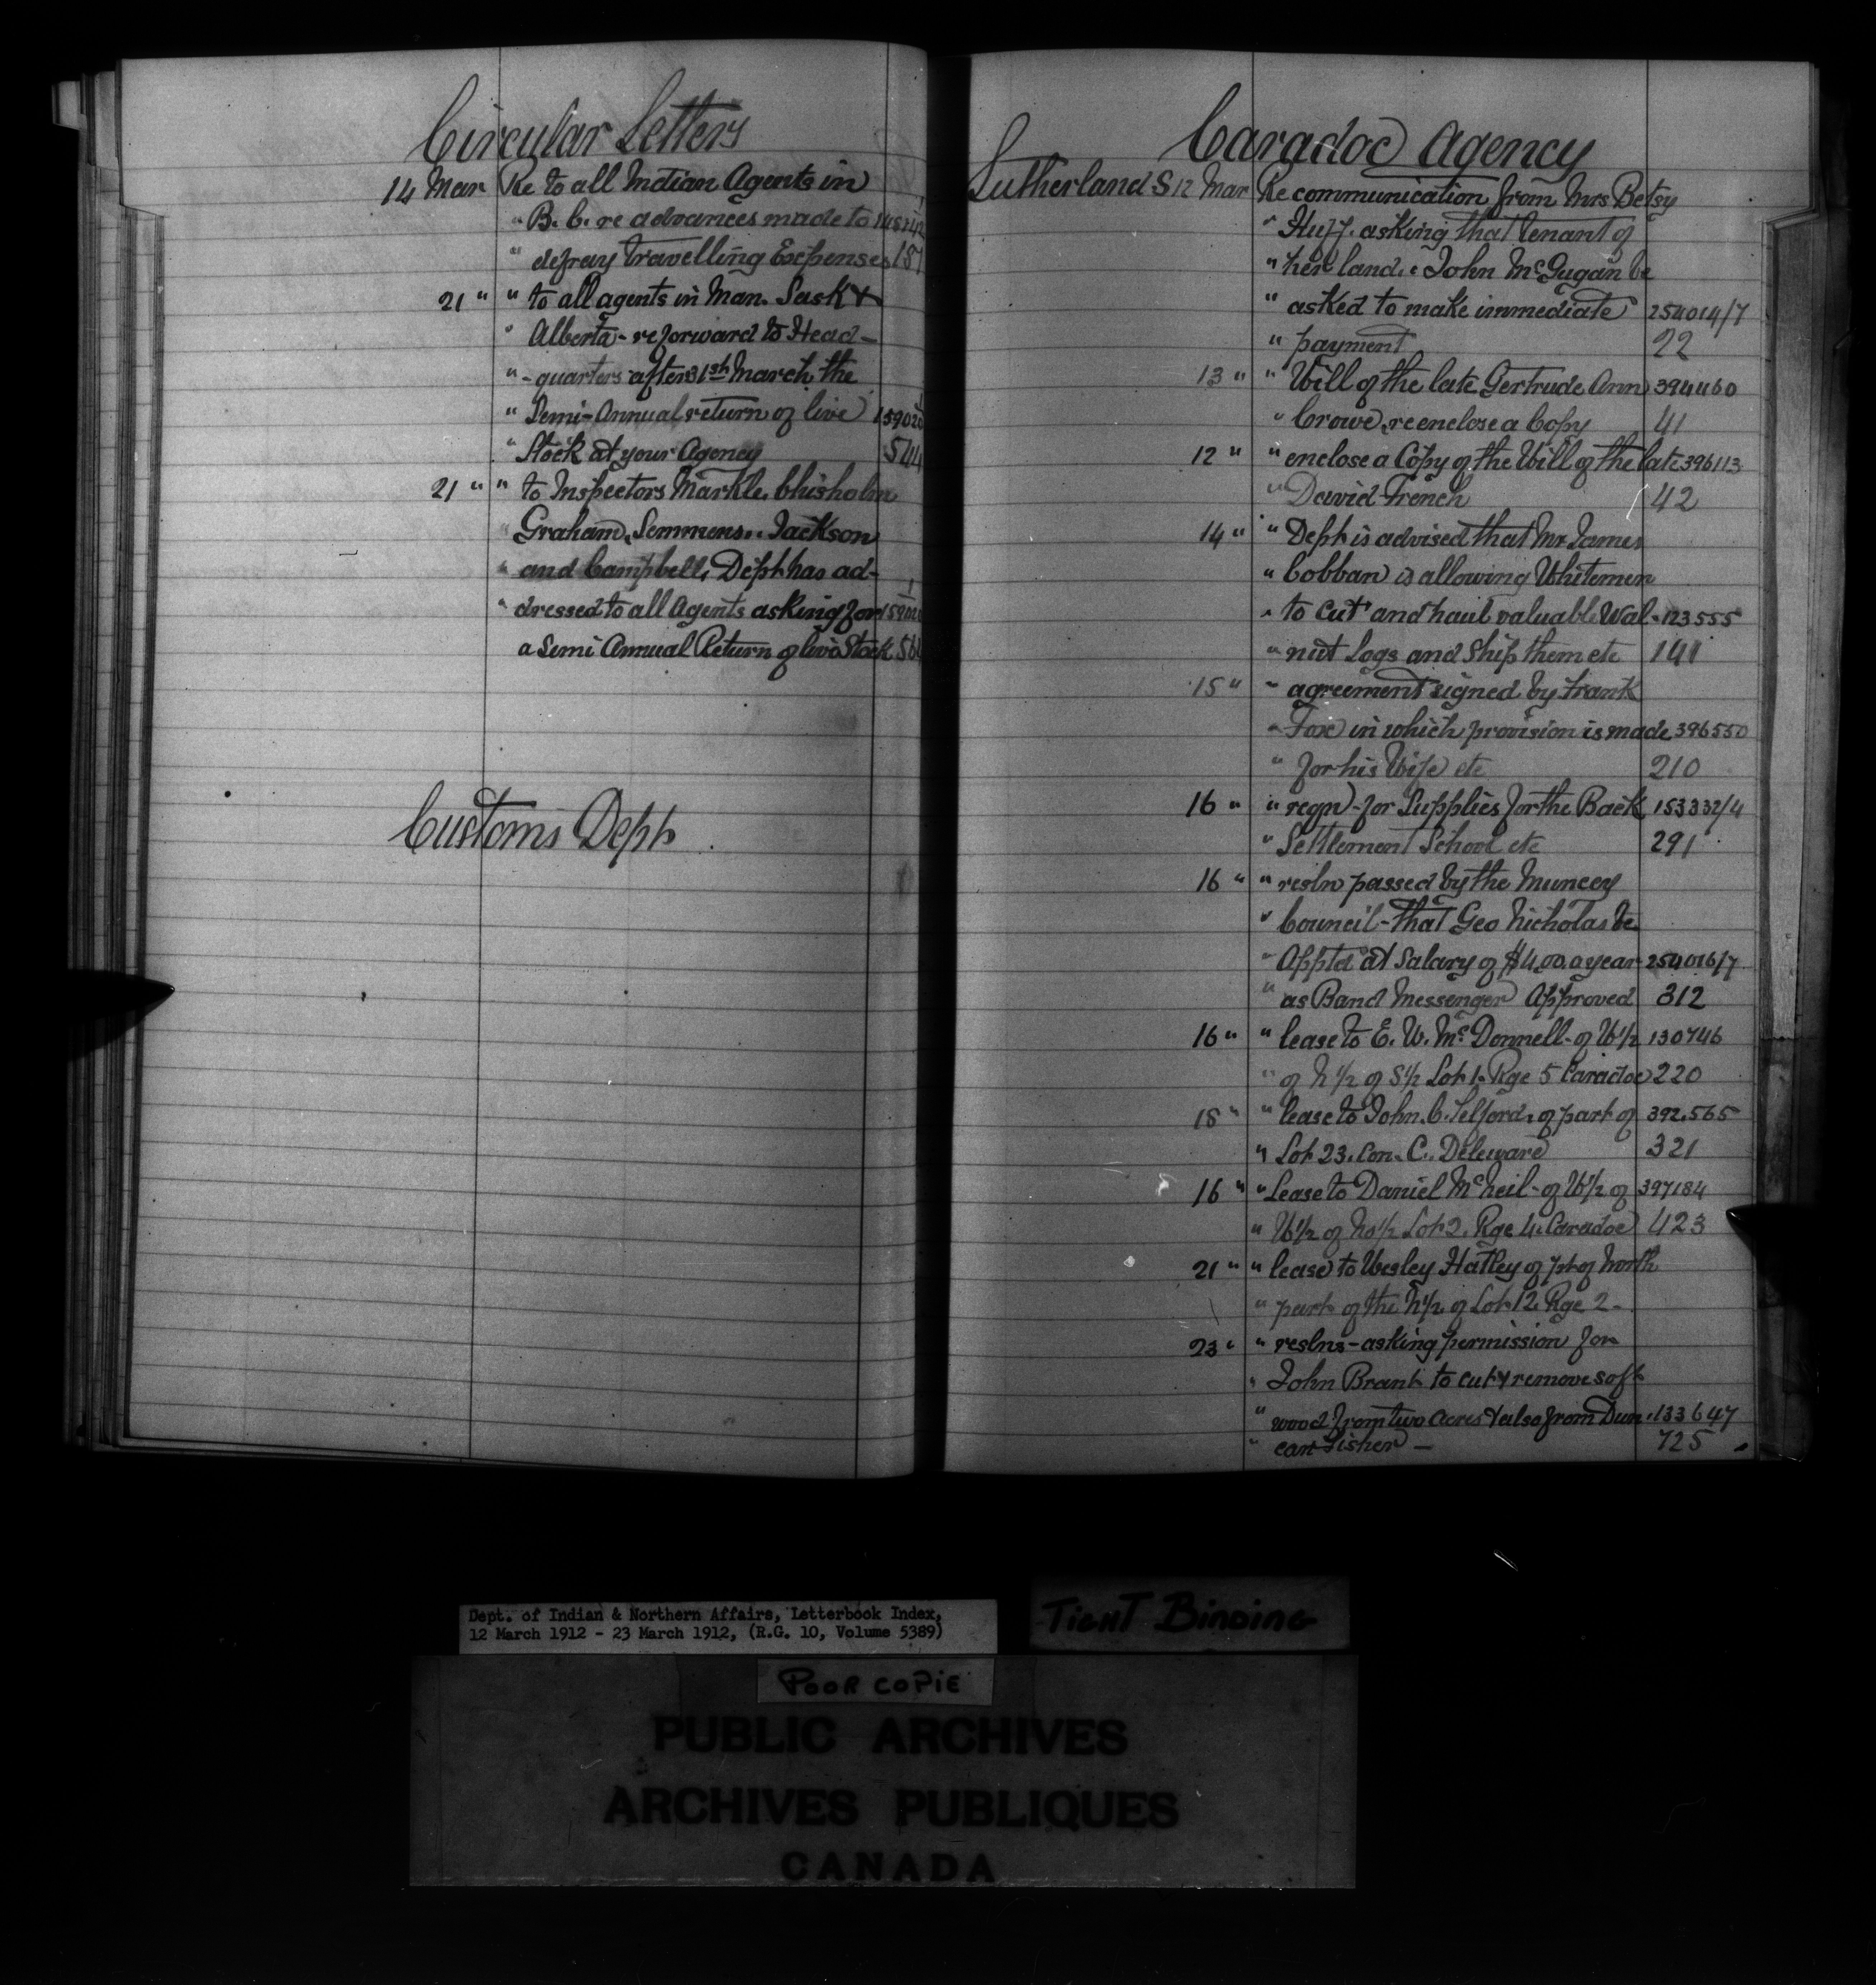 Circular Letters
14 Mar Re to all Indian Agents in
" B.C. re advances made to
" defray Travelling Expenses 157
21 " " to all agents in Man. Sask &
" Alberta - re forward to Head-
" - quarters after 31st March the
" Semi-Annual return of live 159020
" Stock at your Agency 544
21 " " to Inspectors Markle, Chisholm
" Graham, Semmens, Jackson
" and Campbell, Dept has ad-
" dressed to all Agents asking for
a Semi Annual Return of live Stock
Customs Dept.
Caradoc Agency
Sutherland S 12 Mar Re communication from Mrs Betsy
" Huff. asking that tenant of
" her land. John McGugan be
" asked to make immediate 254014/7
" payment 22
13 " " Will of the late Gertrude Ann 394460
" Crowe, re enclose a Copy 41
12 " " enclose a Copy of the Will of the late 396113
" David French 42
14 " " Dept is advised that Mr James
" Cobban is allowing Whitemen
" to cut and haul valuable Wal- 123555
" nut Logs and Ship them etc 141
15 " " agreement signed by Frank
" Fox in which provision is made 396550
" for his Wife etc 210
16 " " reqn - for Supplies for the Back 153332/4
" Settlement School etc 291
16 " " resln passed by the Muncey
" Council - that Geo Nicholas be
" Apptd at Salary of $4.00 a year 254016/7
" as Band Messenger Approved 312
16 " " lease to E. W. McDonnell - of W1/2 130746
" of N 1/2 of S1/2 Lot 1. Rge 5 Caradoc 220
18 " " lease to John. C. Telford. of part of 392.565
" Lot 23. Con. C. Deleware 321
16 " " Lease to Daniel McNeil - of W1/2 of 397184
" W1/2 of No1/2 Lot 2. Rge 4. Caradoc 423
21 " " lease to Wesley Hatley of pt of North
" part of the N1/2 of Lot 12. Rge 2 -
23 " " reslns - asking permission for
" John Brant to cut & remove soft
" wood from two acres & also from Dun- 133647
" can Fisher — 725
Dept. of Indian & Northern Affairs, Letterbook Index,
12 March 1912 - 23 March 1912, (R.G. 10, Volume 5389)
TIGHT BINDING
POOR COPIE
PUBLIC ARCHIVES
ARCHIVES PUBLIQUES
CANADA